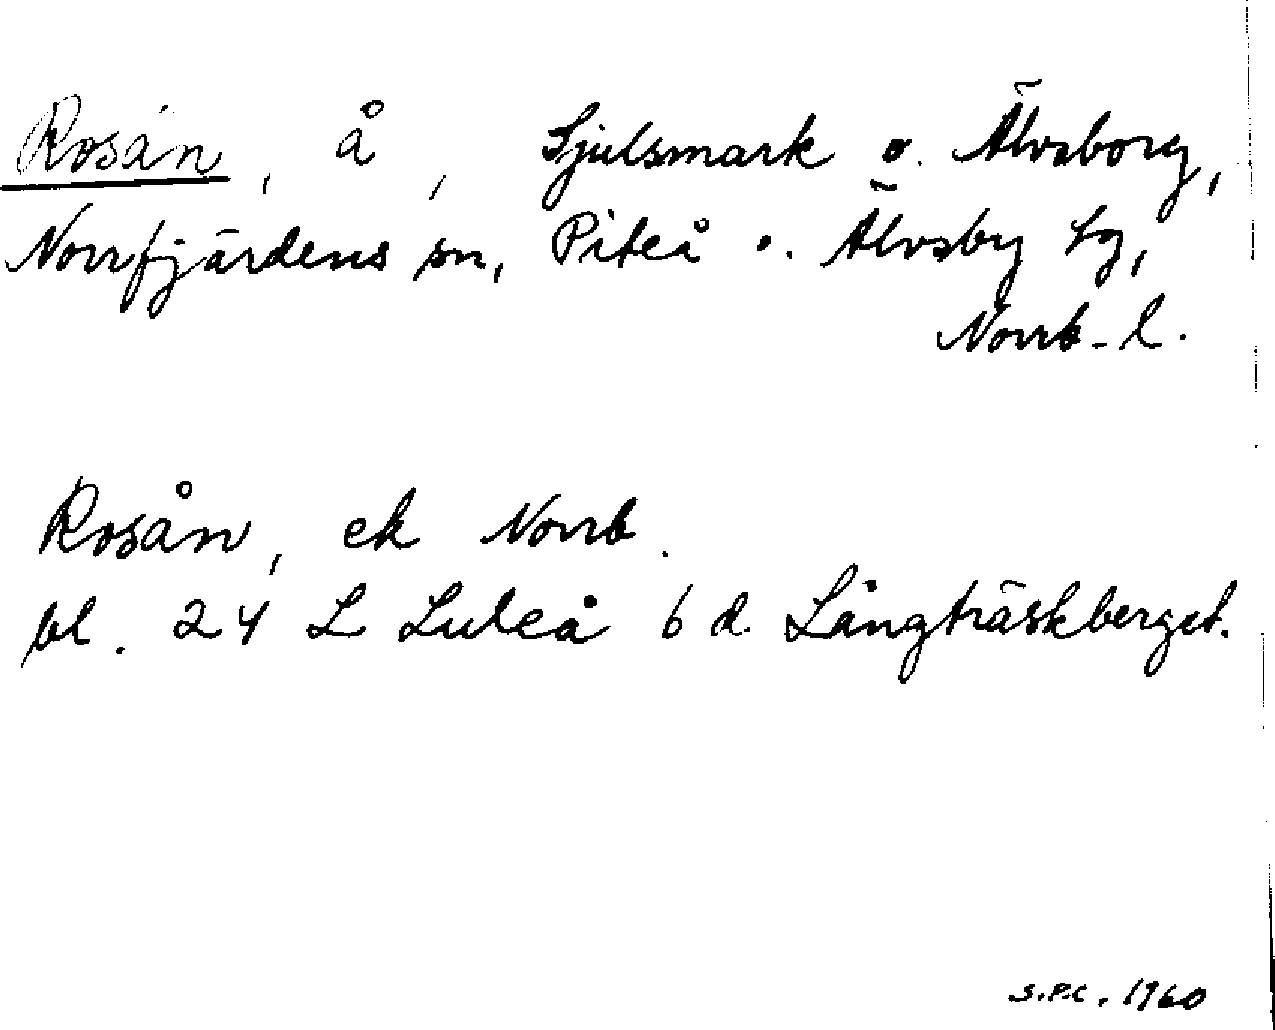 Rosån, å, Sjulsmark o. Älvsborg,
Norrfjärdens sn, Piteå o. Älvsby tg,
Norrb. l.
Rosån, ek Norrb.
bl. 24 L Luleå 6 d. Långträskberget.
S.P.C. 1960